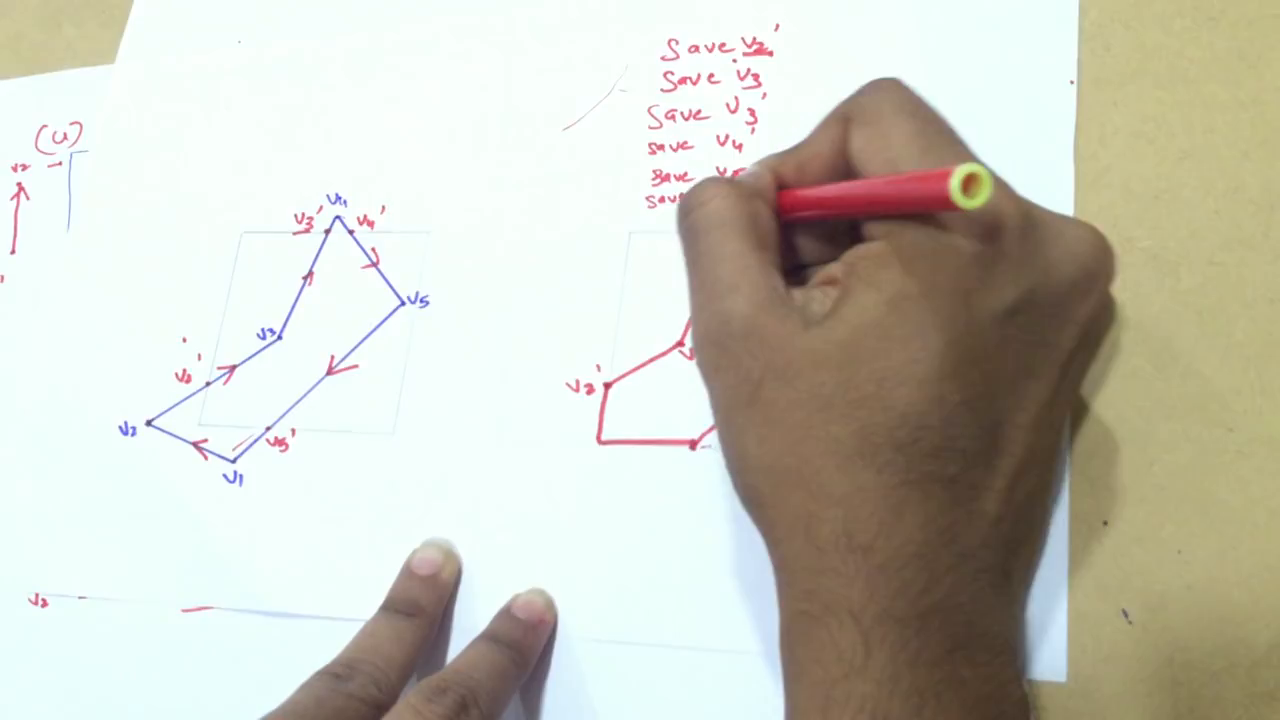 Save V2'
Save V3
Save V3'
save V4'
save
(u)
V2
V4
V3' V4'
V5
V3
V2'
V2
V5'
V1
V2'
V2